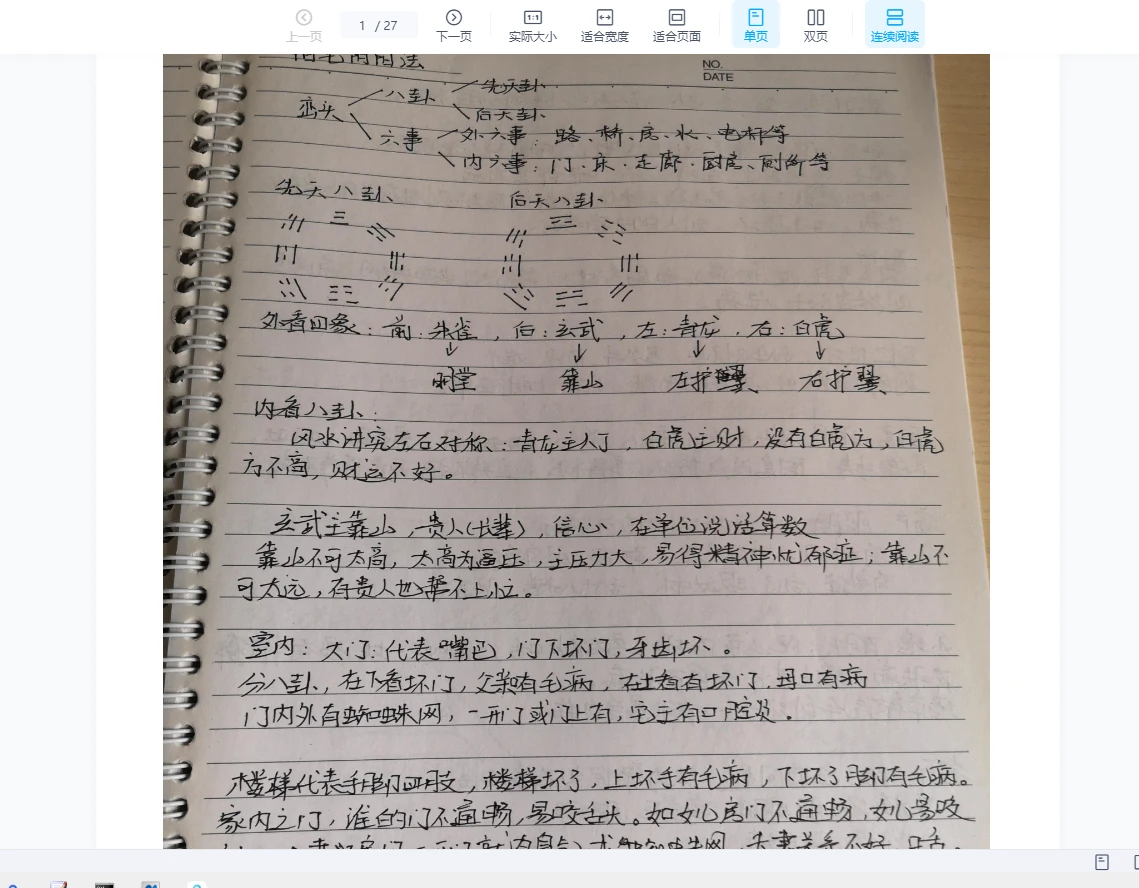 上一页
1 / 27
下一页
实际大小
适合宽度
适合页面
单页
双页
连续阅读
NO.
DATE
峦头
八卦
先天卦
后天卦
六事
外六事：路、桥、房、水、电杆等
内六事：门、床、走廊、厨房、厕所等
先天八卦、
后天八卦、
外看四象：前：朱雀，后：玄武，左：青龙，右：白虎
明堂
靠山
左护翼
右护翼
内看八卦：
风水讲究左右对称：青龙主人丁，白虎主财，没有白虎方，白虎
方不高，财运不好。
玄武主靠山，贵人(长辈)，信心，在单位说话算数
靠山不可太高，太高为逼压，主压力大，易得精神忧郁症；靠山不
可太远，有贵人也帮不上忙。
室内：大门：代表嘴巴，门下坏门，牙齿坏。
分八卦，在下看坏门，父亲有毛病，在上看有坏门，母口有病
门内外有蜘蛛网，一开门或门上有，宅主有口腔炎。
楼梯代表手脚四肢，楼梯坏了，上坏手有毛病，下坏了脚有毛病。
家内之门，谁的门不通畅，易咬舌头。如女儿房门不通畅，女儿易咬